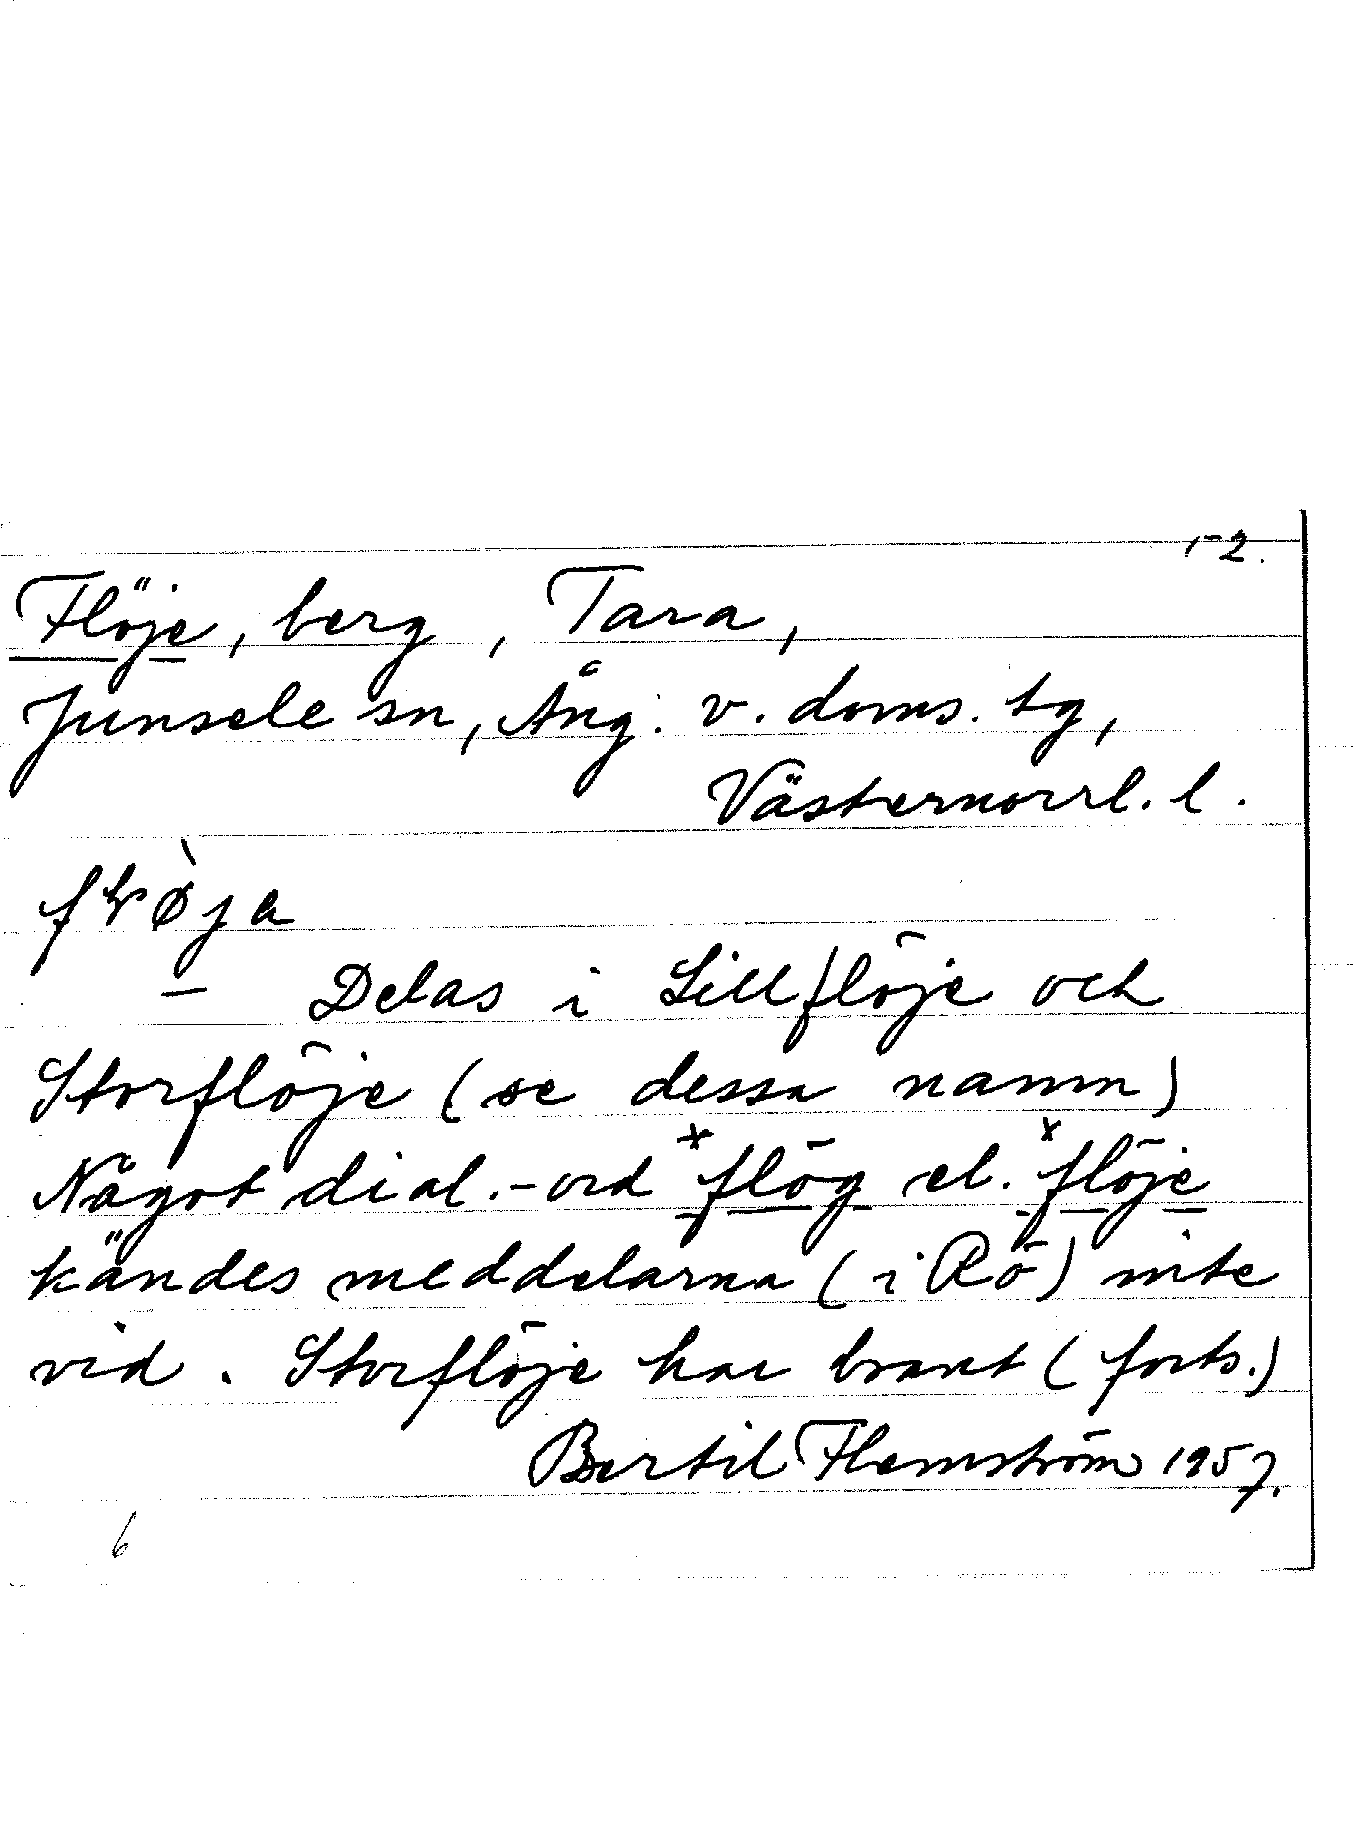 1-2.
Flöje, berg, Tara,
Junsele sn, Ång. v. doms. tg,
Västernorrl. l.
Delas i Lillflöje och
Storflöje (se dessa namn)
Något dial.-ord ˣflög el. ˣflöje
kändes meddelarna (i Rö) inte
vid. Storflöje har brant (forts.)
Bertil Flemström 1957.
6